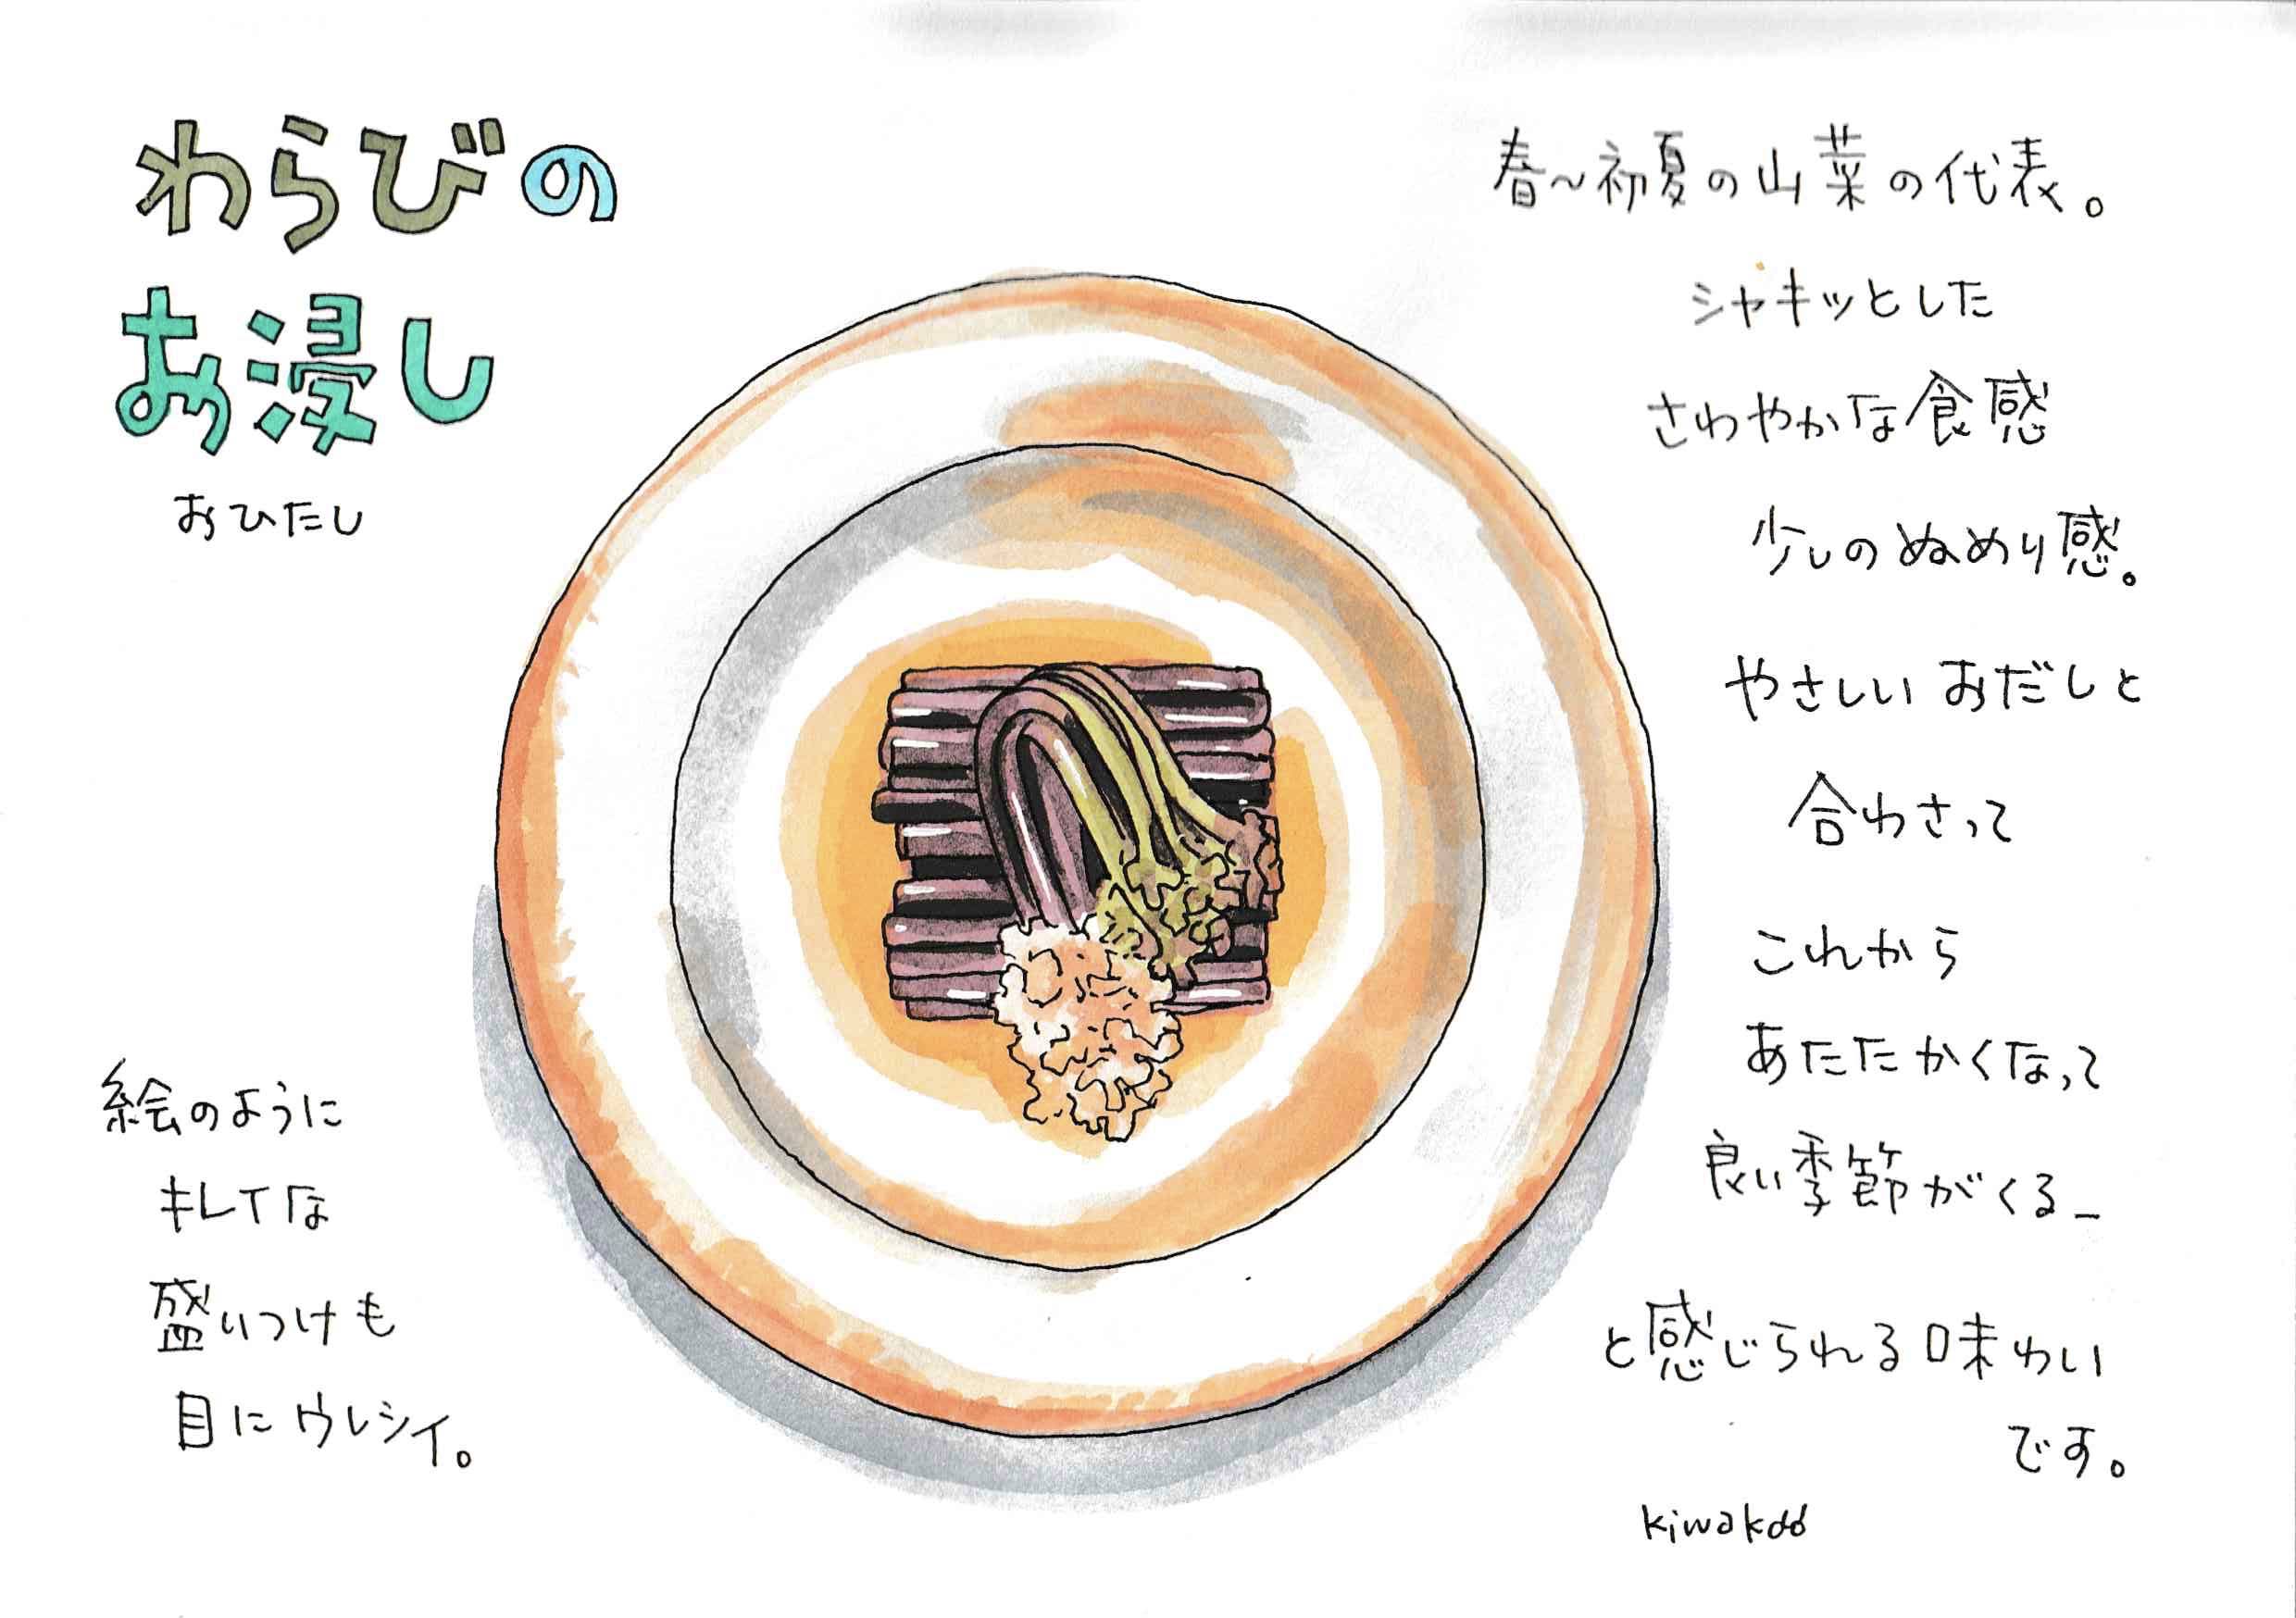 わらびの
お浸し
おひたし
春〜初夏の山菜の代表。
シャキッとした
さわやかな食感
少しのぬめり感。
やさしいおだしと
合わさって
これから
あたたかくなって
良い季節がくる_
と感じられる味わい
です。
絵のように
キレイな
盛りつけも
目にウレシイ。